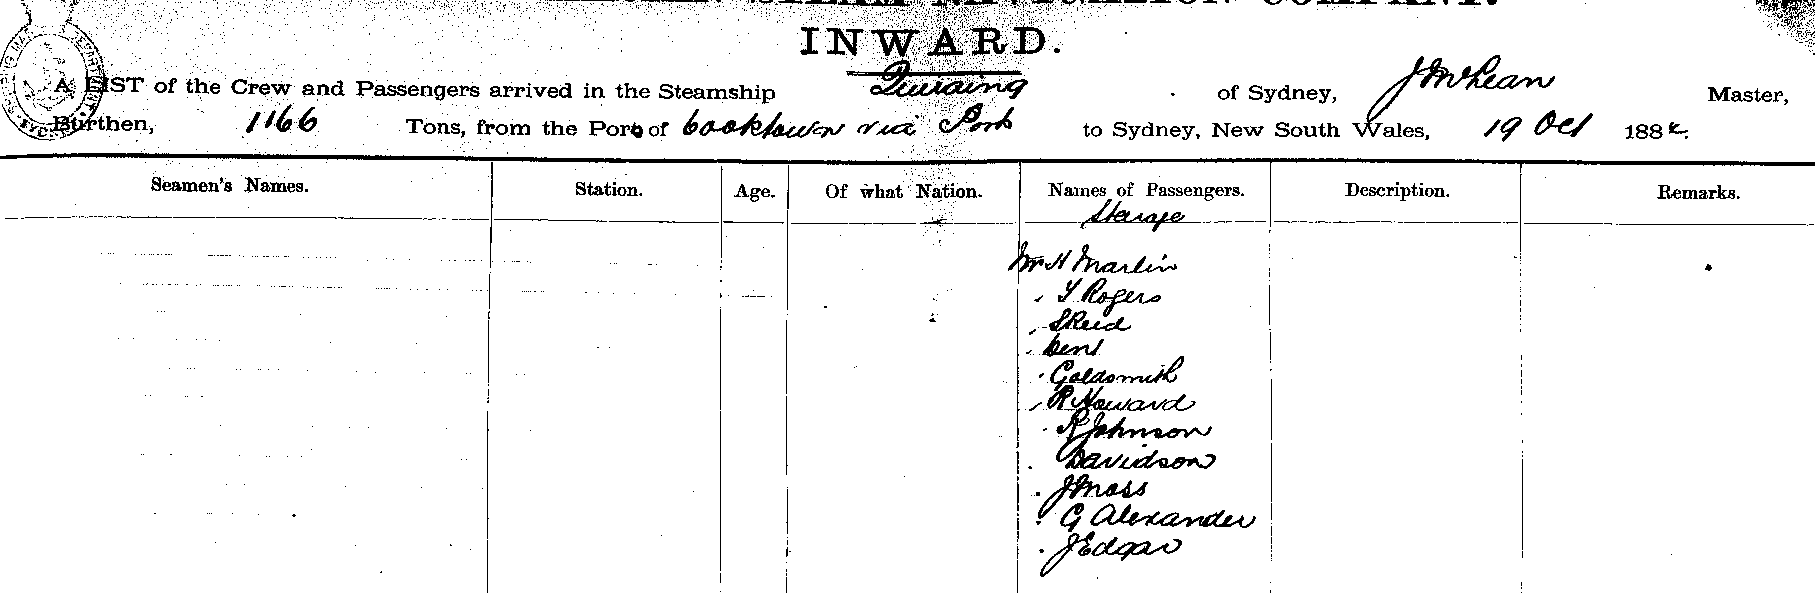 STEAM NAVIGATION COMPANY.
INWARD.
A LIST of the Crew and Passengers arrived in the Steamship Quiraing of Sydney, J McLean Master,
Burthen, 1166 Tons, from the Port of Cooktown via Ports to Sydney, New South Wales, 19 Oct 188
Seamen's Names. Station. Age. Of what Nation. Names of Passengers. Description. Remarks.
Steerage
Mr H Martin
" Y Rogers
" S Reid
" Dent
" Goldsmith
" R Howard
" R Johnson
" Davidson
" J Moss
" G Alexander
" J Edgar